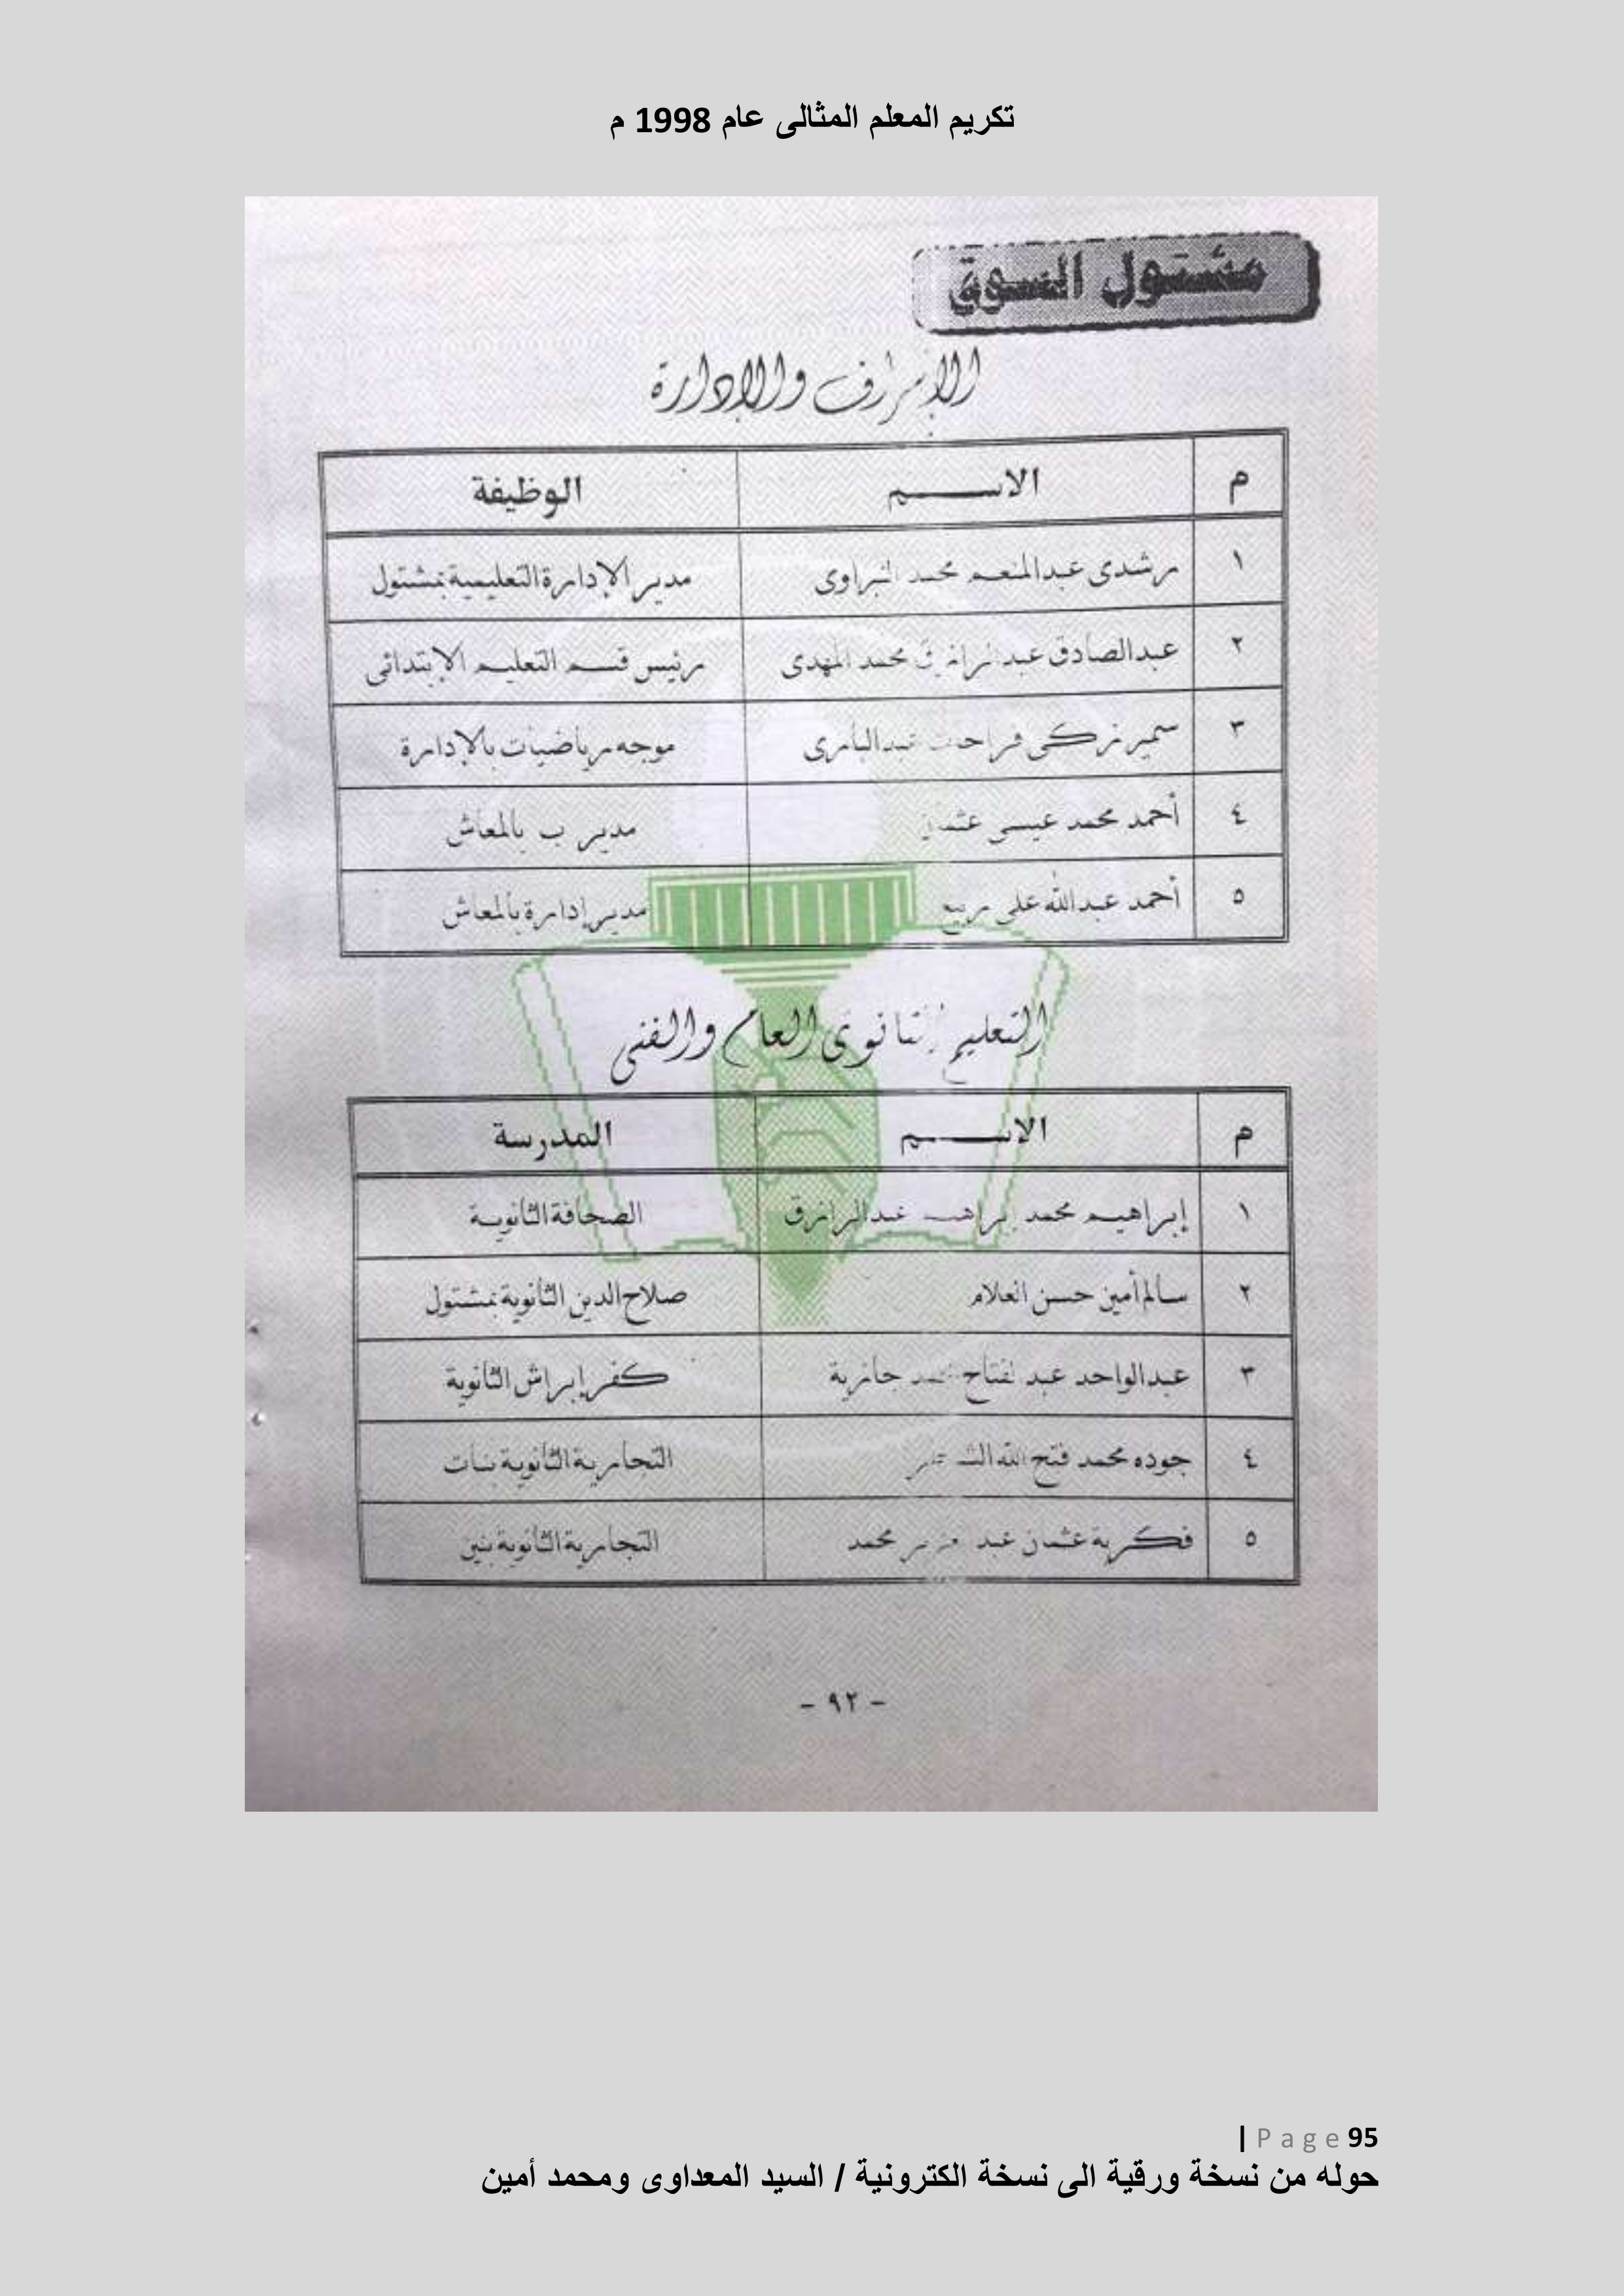 تكريم المعلم المثالى عام 1998 م
مشتول السوق
الإشراف والإدارة
م الاسم الوظيفة
١ رشدى عبدالمنعم محمد مدير الإدارة التعليمية بمشتول
٢ عبدالصادق عبدالرازق محمد المهدى رئيس قسم التعليم الإبتدائى
٣ سمير زكى فرحات عبدالبارى موجه رياضيات بالإدارة
٤ أحمد محمد عيسى عثمان مدير ب بالمعاش
٥ أحمد عبدالله على ربيع مدير إدارة بالمعاش
التعليم الثانوى العام والفنى
م الاسم المدرسة
١ إبراهيم محمد إبراهيم عبدالرازق الصحافة الثانوية
٢ سالم أمين حسن العلام صلاح الدين الثانوية بمشتول
٣ عبدالواحد عبد الفتاح محمد جازية كفر إبراش الثانوية
٤ جوده محمد فتح الله التجارية الثانوية بنات
٥ فكرية عثمان عبد العزيز محمد التجارية الثانوية بنين
- ٩٢ -
| Page 95
حوله من نسخة ورقية الى نسخة الكترونية / السيد المعداوى ومحمد أمين